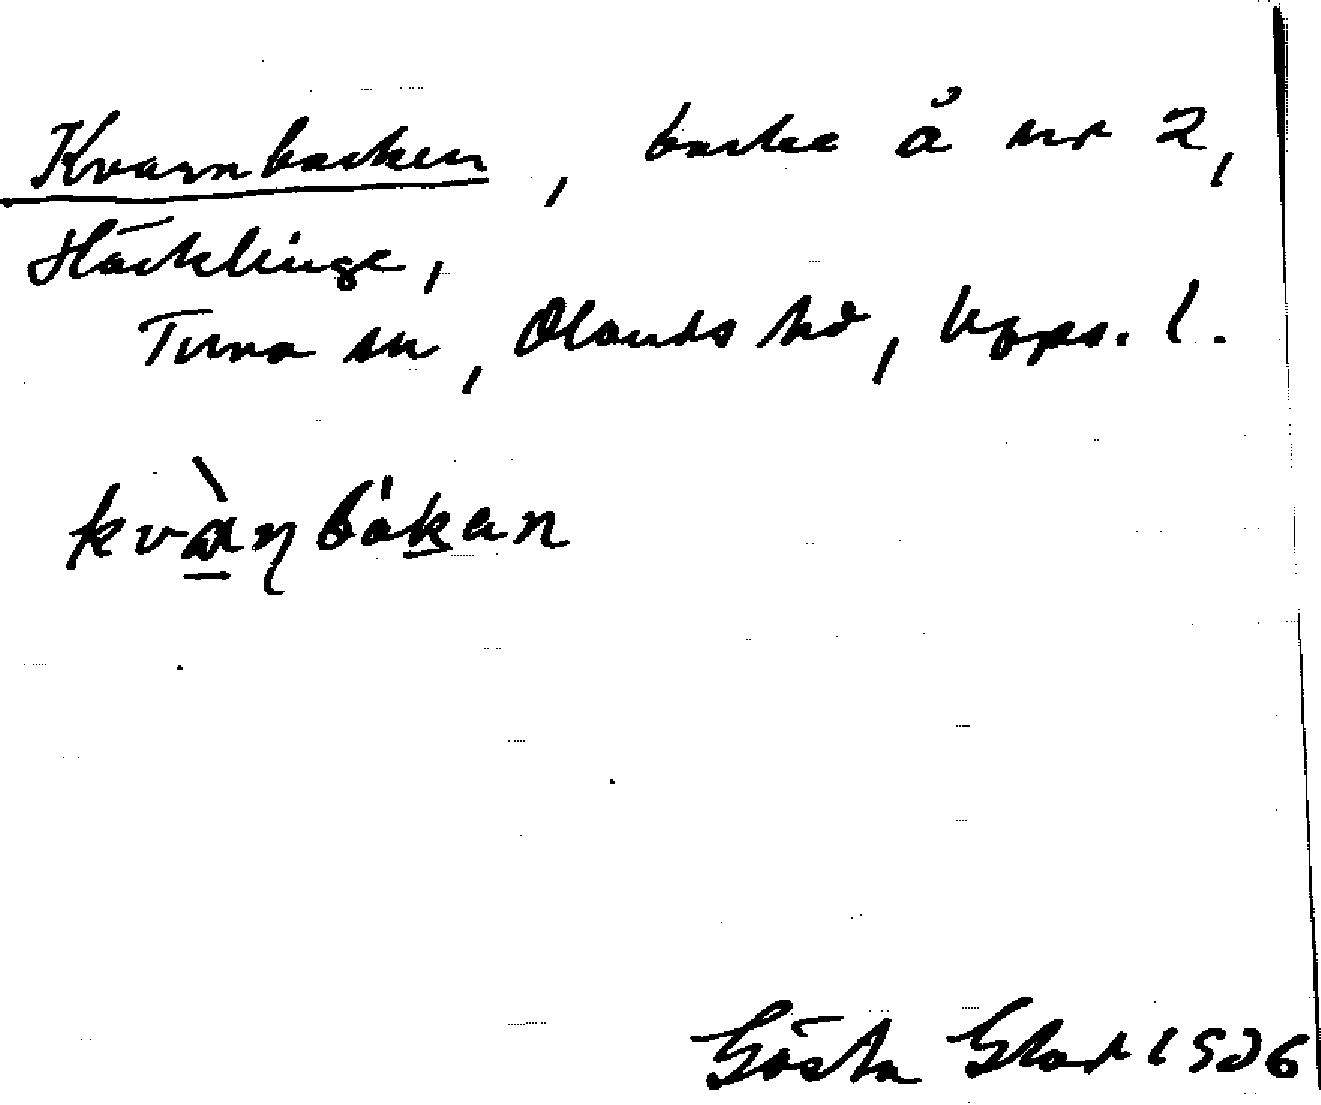 Kvarnbacken, backe å nr 2,
Häcklinge,
Tuna sn, Olands hd, Upps. l.
kvàɳbákan
Gösta Glad 1926